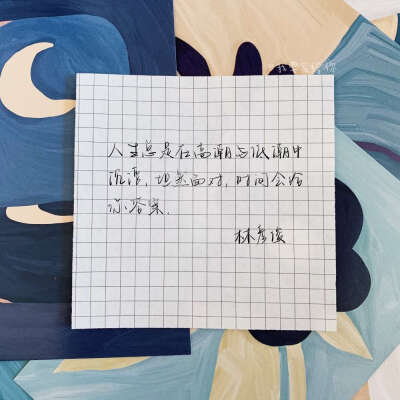 人生总是在高潮与低潮中
沉浮,坦然面对,时间会给
你答案.
林彦俊